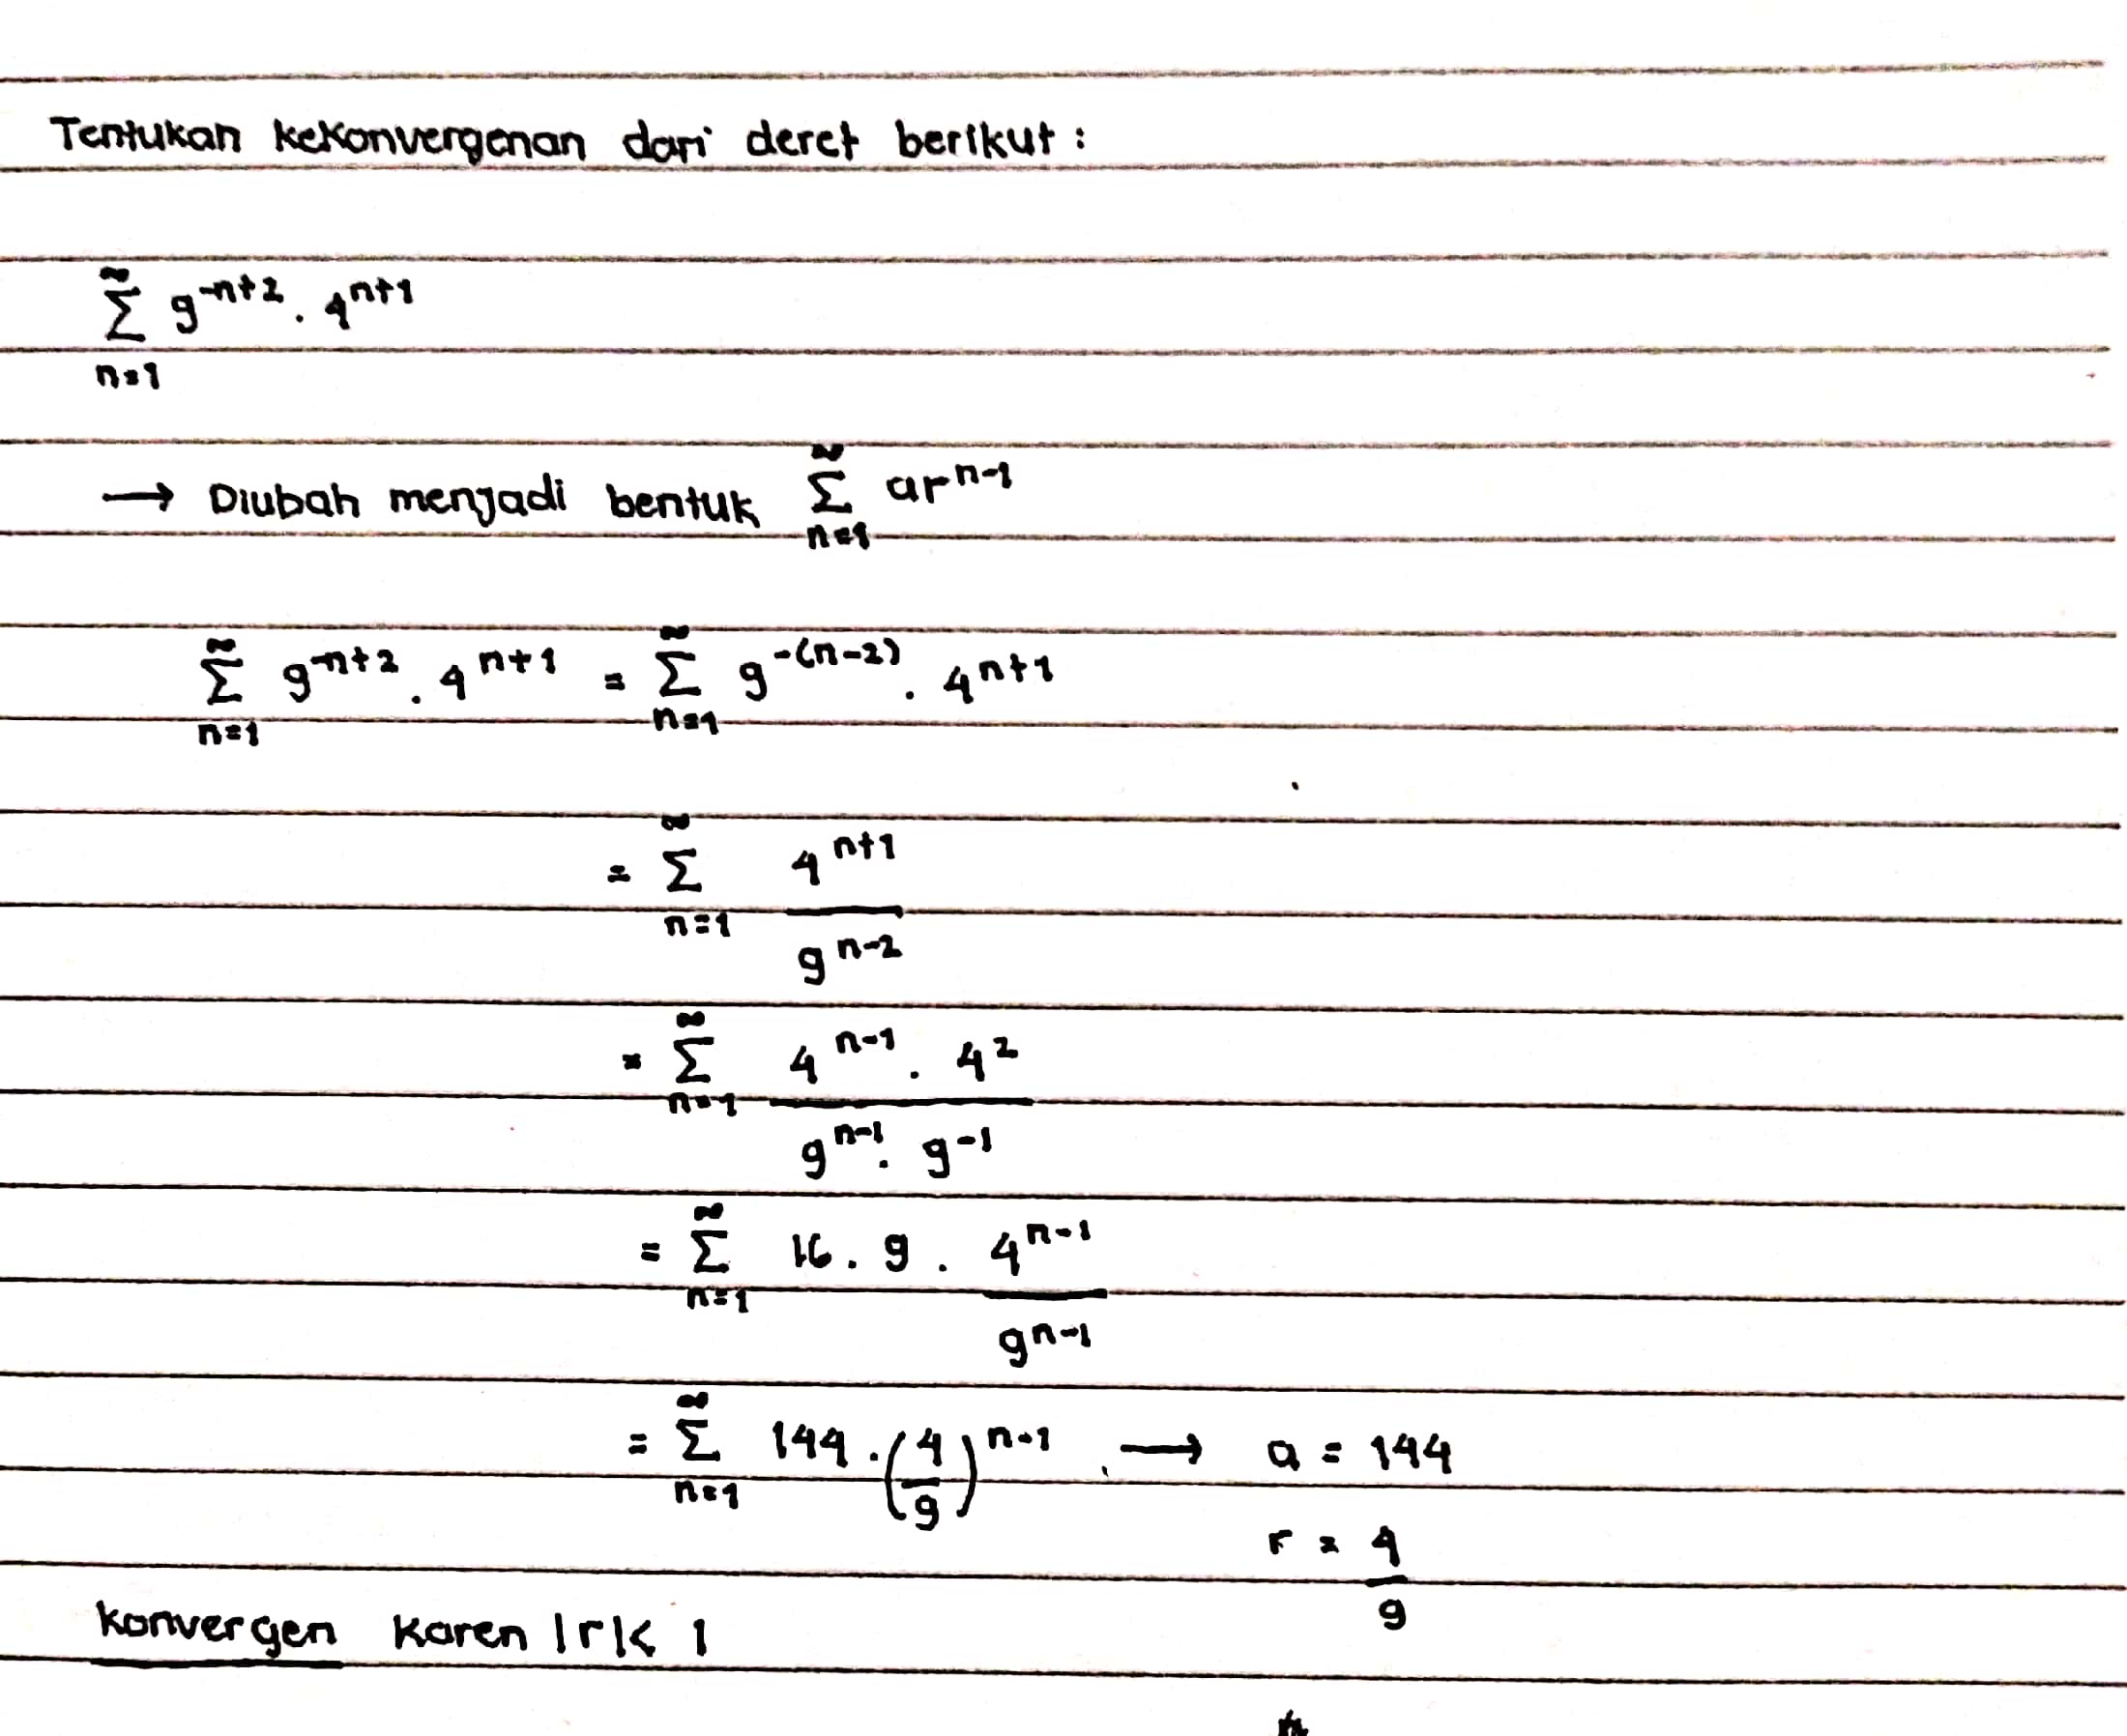 Tentukan kekonvergenan dari deret berikut :
∞
Σ 9^-n+2 . 4^n+1
n=1
→ Diubah menjadi bentuk ∞ Σ n=1 ar^n-1
∞ Σ n=1 9^-n+2 . 4^n+1 = ∞ Σ n=1 9^-(n-2) . 4^n+1
= ∞ Σ n=1 4^n+1 / 9^n-2
= ∞ Σ n=1 4^n-1 . 4^2 / 9^n-1 . 9^-1
= ∞ Σ n=1 16 . 9 . 4^n-1 / 9^n-1
= ∞ Σ n=1 144 . (4/9)^n-1 → a = 144
r = 4/9
konvergen karen |r|< 1